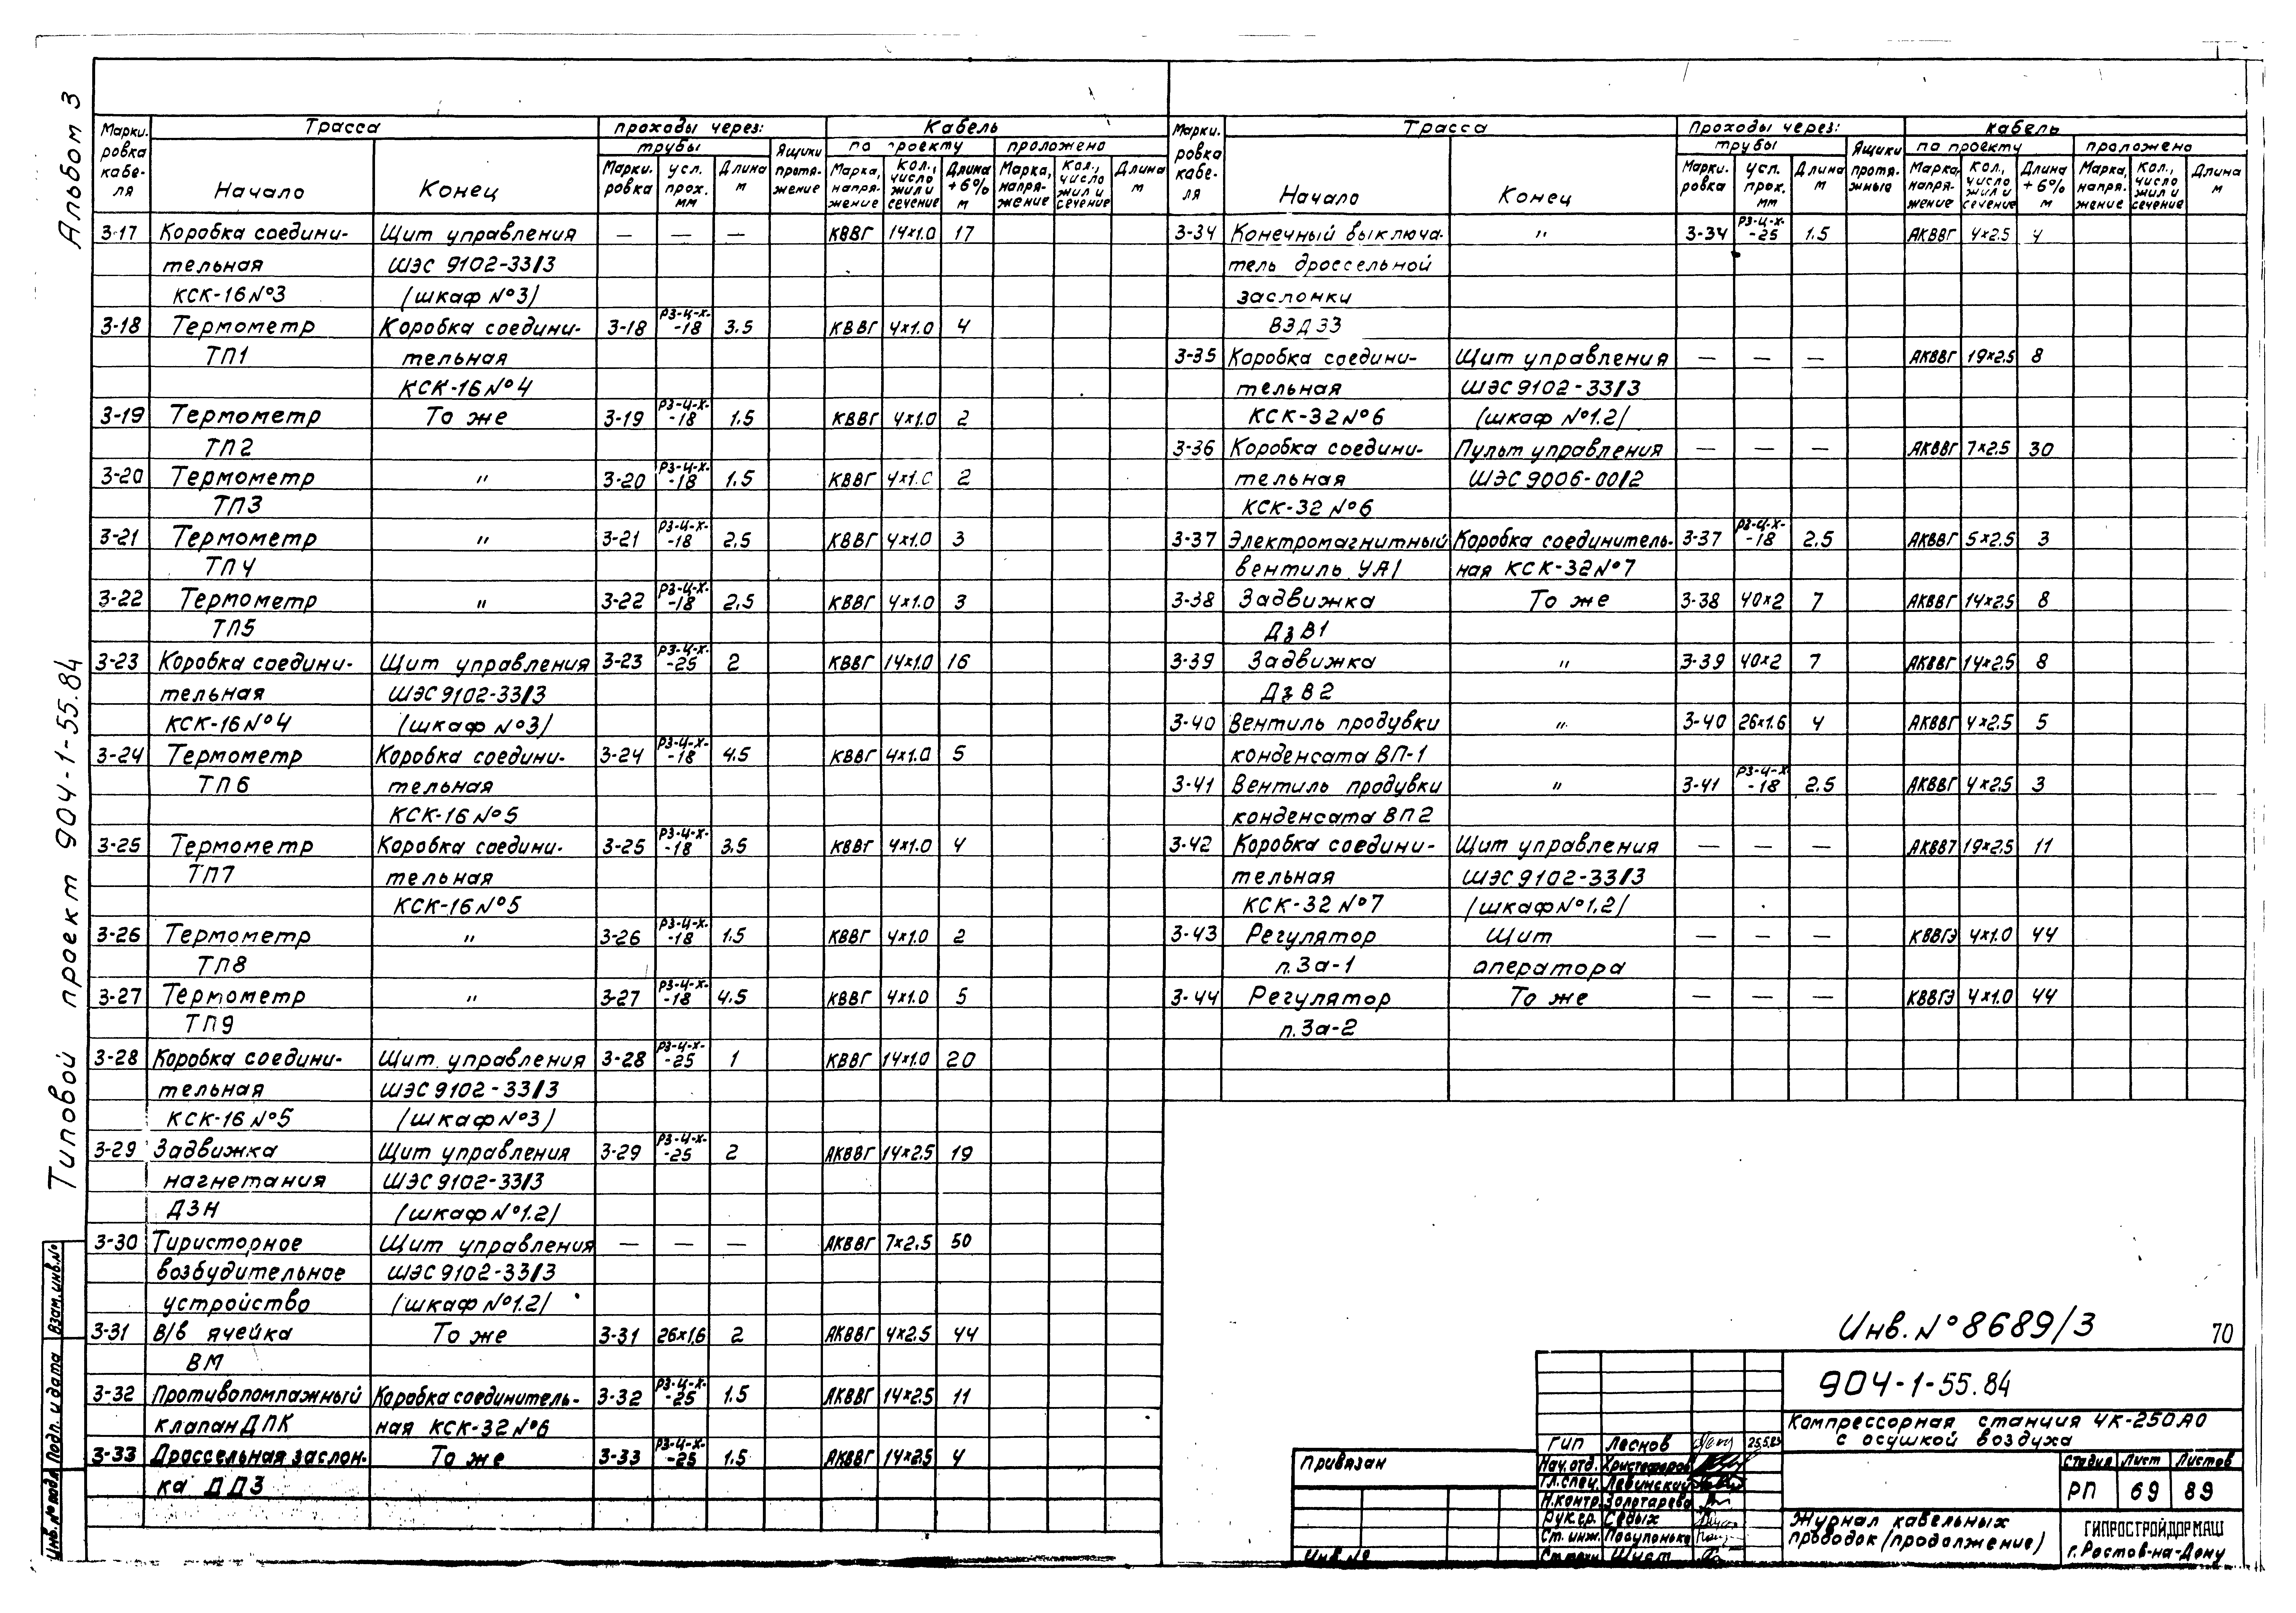 Альбом 3
Типовой проект 904-1-55.84
Марки- ровка кабе- ля
Трасса
Начало
Конец
проходы через:
трубы
Марки- ровка
усл. прох. мм
Длина м
Ящики протя- жение
Кабель
по проекту
Марка, напря- жение
Кол., число жил и сечение
Длина +6% м
проложено
Марка, напря- жение
Кол., число жил и сечение
Длина м
3-17 Коробка соедини- Щит управления — — — КВВГ 14×1.0 17
тельная ШЭС 9102-33/3
КСК-16 №3 (шкаф №3)
3-18 Термометр Коробка соедини- 3-18 РЗ-Ц-Х--18 3.5 КВВГ 4×1.0 4
ТП1 тельная
КСК-16 №4
3-19 Термометр То же 3-19 РЗ-Ц-Х--18 1.5 КВВГ 4×1.0 2
ТП2
3-20 Термометр " 3-20 РЗ-Ц-Х--18 1.5 КВВГ 4×1.0 2
ТП3
3-21 Термометр " 3-21 РЗ-Ц-Х--18 2.5 КВВГ 4×1.0 3
ТП4
3-22 Термометр " 3-22 РЗ-Ц-Х--18 2.5 КВВГ 4×1.0 3
ТП5
3-23 Коробка соедини- Щит управления 3-23 РЗ-Ц-Х--25 2 КВВГ 14×1.0 16
тельная ШЭС 9102-33/3
КСК-16 №4 (шкаф №3)
3-24 Термометр Коробка соедини- 3-24 РЗ-Ц-Х--18 4.5 КВВГ 4×1.0 5
ТП6 тельная
КСК-16 №5
3-25 Термометр Коробка соедини- 3-25 РЗ-Ц-Х--18 3.5 КВВГ 4×1.0 4
ТП7 тельная
КСК-16 №5
3-26 Термометр " 3-26 РЗ-Ц-Х--18 1.5 КВВГ 4×1.0 2
ТП8
3-27 Термометр " 3-27 РЗ-Ц-Х--18 4.5 КВВГ 4×1.0 5
ТП9
3-28 Коробка соедини- Щит управления 3-28 РЗ-Ц-Х--25 1 КВВГ 14×1.0 20
тельная ШЭС 9102-33/3
КСК-16 №5 (шкаф №3)
3-29 Задвижка Щит управления 3-29 РЗ-Ц-Х--25 2 АКВВГ 14×2.5 19
нагнетания ШЭС 9102-33/3
ДЗН (шкаф №1.2)
3-30 Тиристорное Щит управления — — — АКВВГ 7×2.5 50
возбудительное ШЭС 9102-33/3
устройство (шкаф №1.2)
3-31 В/в ячейка То же 3-31 26×1.6 2 АКВВГ 4×2.5 44
ВМ
3-32 Противопомпажный Коробка соединитель- 3-32 РЗ-Ц-Х--25 1.5 АКВВГ 14×2.5 11
клапан ДПК ная КСК-32 №6
3-33 Дроссельная заслон- То же 3-33 РЗ-Ц-Х--25 1.5 АКВВГ 14×2.5 4
ка ДДЗ
Марки- ровка кабе- ля
Трасса
Начало
Конец
Проходы через:
трубы
Марки- ровка
усл. прох. мм
Длина м
Ящики протя- жные
кабель
по проекту
Марка, напря- жение
Кол., число жил и сечение
Длина +6% м
проложено
Марка, напря- жение
Кол., число жил и сечение
Длина м
3-34 Конечный выключа- " 3-34 РЗ-Ц-Х--25 1.5 АКВВГ 4×2.5 4
тель дроссельной
заслонки
ВЭДЗЗ
3-35 Коробка соедини- Щит управления — — — АКВВГ 19×2.5 8
тельная ШЭС 9102-33/3
КСК-32 №6 (шкаф №1.2)
3-36 Коробка соедини- Пульт управления — — — АКВВГ 7×2.5 30
тельная ШЭС 9006-00/2
КСК-32 №6
3-37 Электромагнитный Коробка соединитель- 3-37 РЗ-Ц-Х--18 2.5 АКВВГ 5×2.5 3
вентиль УА1 ная КСК-32 №7
3-38 Задвижка То же 3-38 40×2 7 АКВВГ 14×2.5 8
ДзВ1
3-39 Задвижка " 3-39 40×2 7 АКВВГ 14×2.5 8
ДзВ2
3-40 Вентиль продувки " 3-40 26×1.6 4 АКВВГ 4×2.5 5
конденсата ВП-1
3-41 Вентиль продувки " 3-41 РЗ-Ц-Х--18 2.5 АКВВГ 4×2.5 3
конденсата ВП2
3-42 Коробка соедини- Щит управления — — — АКВВГ 19×2.5 11
тельная ШЭС 9102-33/3
КСК-32 №7 (шкаф №1.2)
3-43 Регулятор Щит — — — КВВГЭ 4×1.0 44
п.3а-1 оператора
3-44 Регулятор То же — — — КВВГЭ 4×1.0 44
п.3а-2
Инв. № 8689/3
70
904-1-55.84
Компрессорная станция 4К-250А0
с осушкой воздуха
Стадия Лист Листов
РП 69 89
Журнал кабельных
проводок (продолжение)
ГИПРОСТРОЙДОРМАШ
г. Ростов-на-Дону
ГИП Леснов
Нач. отд. Христофоров
Гл. спец. Левинский
Н. контр. Золотарева
Рук. гр. Седых
Ст. инж.
Ст. техн. Шуст
Привязан
Инв №
Взам. инв. №
Подп. и дата
Инв. № подл.